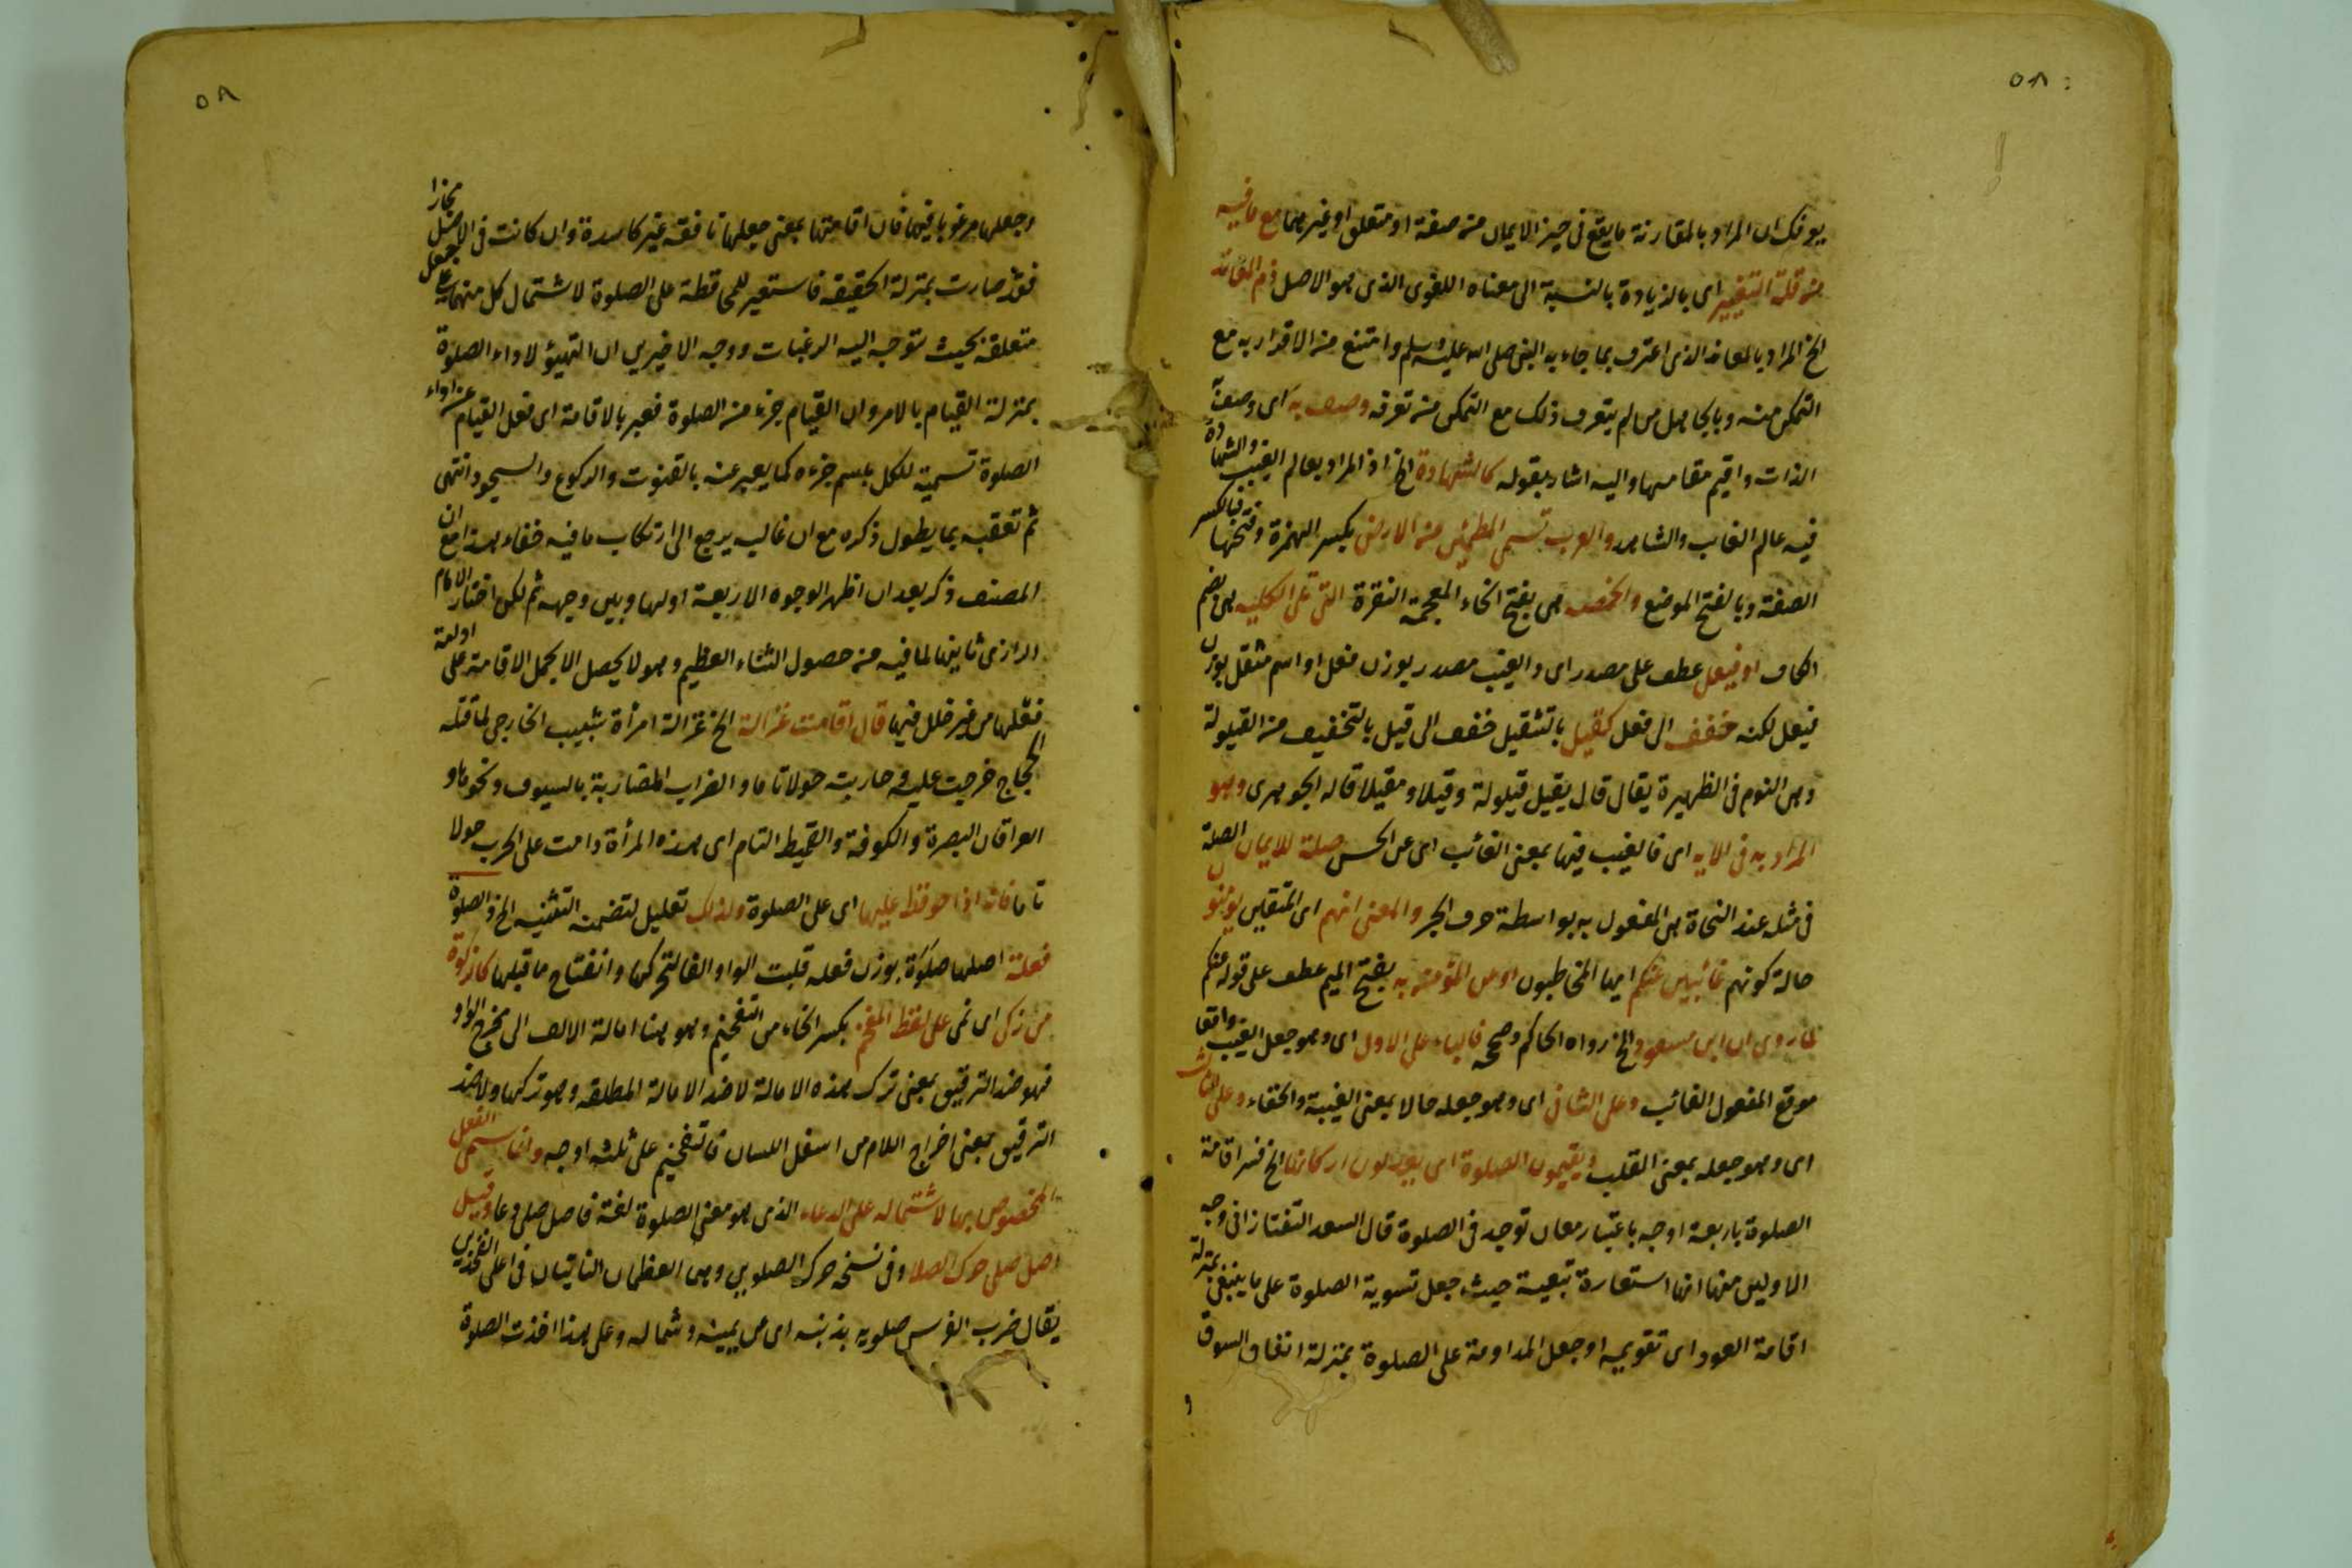 ٥٨
يوفك ان المراد بالمقارنة ما يقع فى حيز الايمان من صفة او متعلق او غيرهما مع ما فيه
من قلة التغيير اى بالزيادة بالنسبة الى معناه اللغوى الذى هو الاصل ذم المعاند
الخ المراد بالمعاند الذى اعترف بما جاء به النبى صلى الله عليه وسلم وامتنع من الاقرار به مع
التمكن منه وبالجاهل من لم يتعرف ذلك مع التمكن من تعرفه وصف به اى وصف
الذات واقيم مقامها واليه اشار بقوله كالشهادة الخ اذ المراد بعالم الغيب والشهادة
فيه عالم الغائب والشاهد والعرب تسمى المطمئن من الارض بكسر الهمزة وفتحها فبالكسر
الصفة وبالفتح الموضع والخمصة هى بفتح الخاء المعجمة النقرة التى تلى الكلية هى بضم
الكاف او فيعل عطف على مصدر اى والغيب مصدر بوزن فعل او اسم مثقل بوزن
فيعل لكنه خفف الى فعل كقيل بالتثقيل خفف الى قيل بالتخفيف من القيلولة
وهى النوم فى الظهيرة يقال قال يقيل قيلولة وقيلا ومقيلا قاله الجوهرى وهو
المراد به فى الاية اى فالغيب فيها بمعنى الغائب اى عن الحس صلة للايمان الصلة
فى مثله عند النحاة هى المفعول به بواسطة حرف الجر والمعنى انهم اى المتقين يؤمنون
حالة كونهم غائبين عنكم ايها المخاطبون او عن المؤمن به بفتح الميم عطف على قوله عنكم
لما روى ان ابن مسعود الخ رواه الحاكم وصححه فالباء على الاول اى وهو جعل الغيب واقعا
موقع المفعول الغائب وعلى الثانى اى وهو جعله حالا بمعنى الغيبة والخفاء وعلى الثالث
اى وهو جعله بمعنى القلب ويقيمون الصلوة اى يعدلون اركانها الخ فسر اقامة
الصلوة باربعة اوجه باعتبار معان توجد فى الصلوة قال السعد التفتازانى وجه
الاولين منها انها استعارة تبعية حيث جعل تسوية الصلوة على ما ينبغى بمنزلة
اقامة العود اى تقويمه او جعل المداومة على الصلوة بمنزلة انفاق السوق
و
٥٨
وجعلها مرغوبا فيها فان اقامتها بمعنى جعلها نافقة غير كاسدة وان كانت فى الاصل مجازا
فقد صارت بمنزلة الحقيقه فاستعير للمحافظة على الصلوة لاشتمال كل منهما على جعل
متعلقه بحيث تتوجه اليه الرغبات ووجه الاخيرين ان التهيؤ لاداء الصلوة
بمنزلة القيام بالامر وان القيام جزء من الصلوة فعبر بالاقامة اى فعل القيام عن اداء
الصلوة تسمية للكل باسم جزءه كما يعبر عنه بالقنوت والركوع والسجود انتهى
ثم تعقبه بما يطول ذكره مع ان غالبه يرجع الى ارتكاب ما فيه خفاء هذا مع ان
المصنف ذكر بعد ان اظهر الوجوه الاربعة اولها وبين وجهه ثم لكن اختار الامام
الرازى ثانيها لما فيه من حصول الثناء العظيم وهو لا يحصل الا بحمل الاقامة على ادامة
فعلها من غير خلل فيها قال اقامت غزالة الخ غزالة امرأة شبيب الخارجى لما قتله
الحجاج خرجت عليه وحاربته حولا تاما والضراب المضاربة بالسيوف ونحوها و
العراقان البصرة والكوفة والقميط التام اى هذه المرأة دامت على الحرب حولا
تاما فانه اذا حوفظ عليها اى على الصلوة ولذلك تعليل لتضمنه التنبيه الخ والصلوة
فعلة اصلها صلوة بوزن فعله قلبت الواو الفا لتحركها وانفتاح ما قبلها كالزكوة
من زكى اى نمى على لفظ المفخم بكسر الخاء من التفخيم وهو هنا امالة الالف الى مخرج الواو
فهو ضد الترقيق بمعنى ترك هذه الامالة لا ضد الامالة المطلقه وهو تركها ولا ضد
الترقيق بمعنى اخراج اللام من اسفل اللسان فالتفخيم على ثلثه اوجه وانما سمى الفعل
المخصوص بها لاشتماله على الدعاء الذى هو معنى الصلوة لغة فاصل صلى دعا وقيل
اصل صلى حرك الصلا وفى نسخه حرك الصلوين وهما العظمان الناتيان فى اعلى الفخذين
يقال ضرب الفرس صلويه بذنبه اى عن يمينه وشماله وعلى هذا اخذت الصلوة